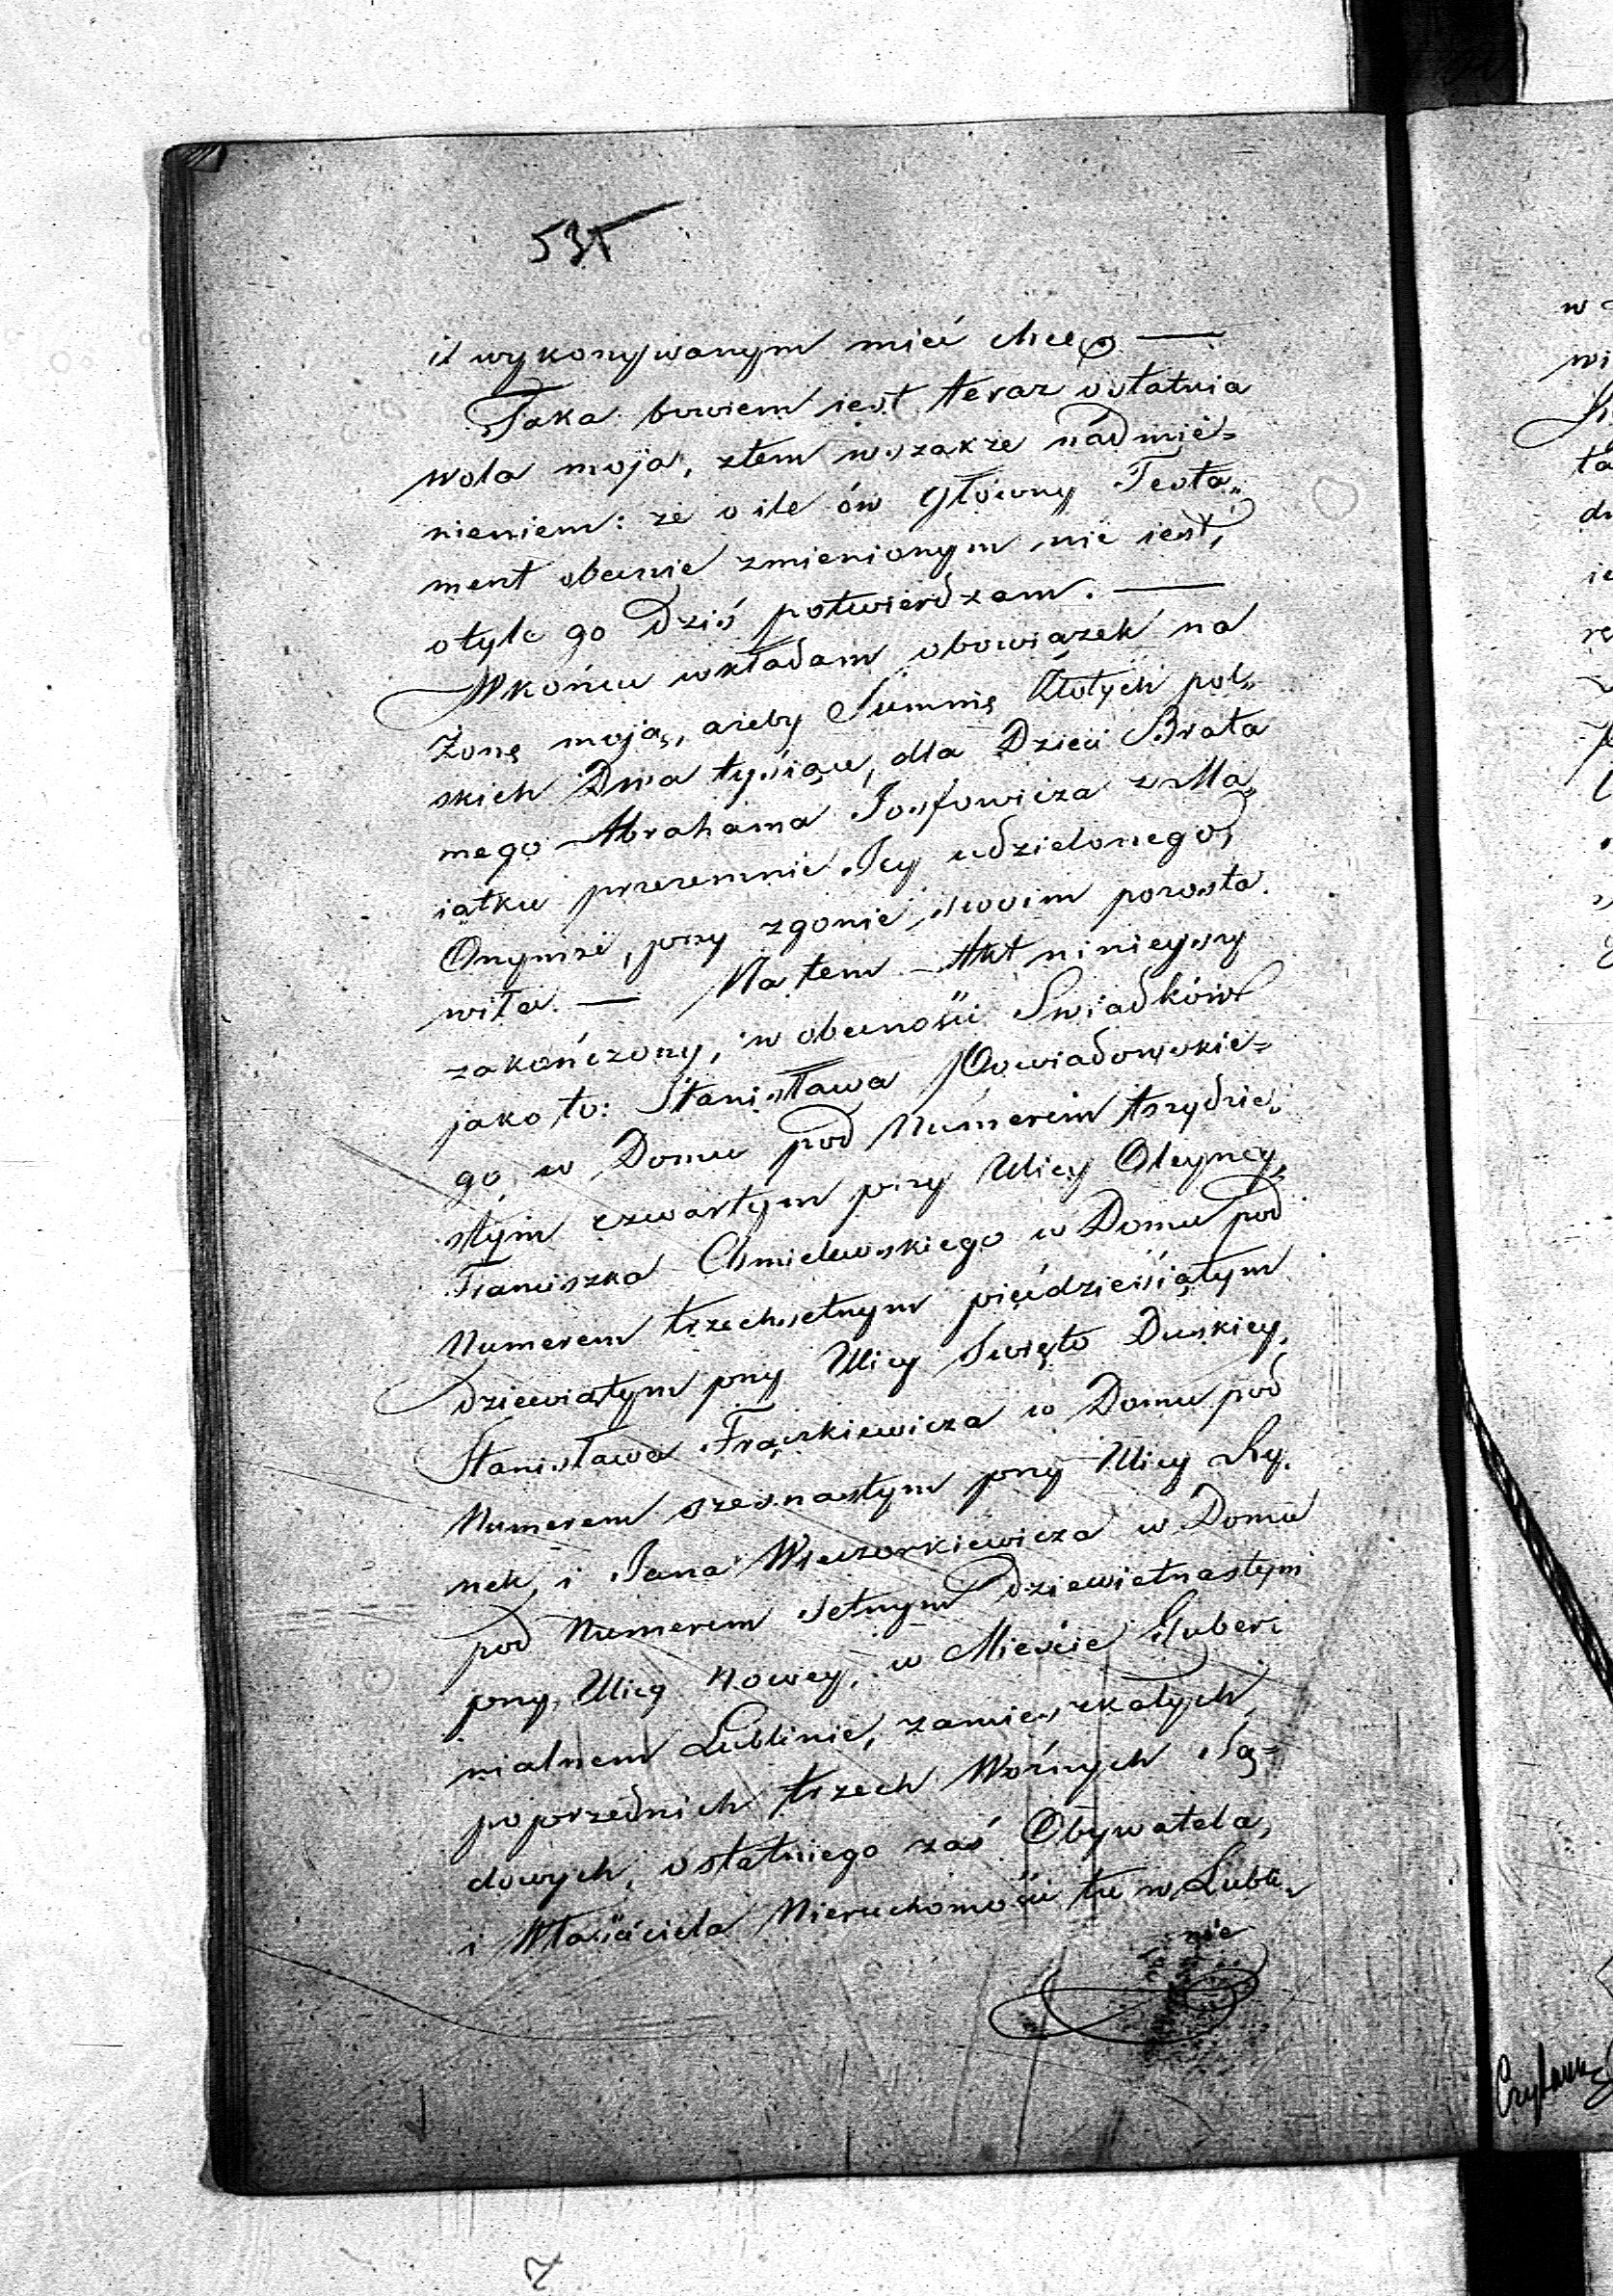 535
it wykonywanym mieć chcę. —
Taka bowiem iest teraz ostatnia
wola moja, ztem wszakże nadmie=
nieniem: że o ile ów główny Testa„
ment obecnie zmienionym nie iest,
otyle go Dziś potwierdzam. —
W końcu wkładam obowiązek na
Żonę moją, ażeby Summę Złotych pol„
skich Dwa tysiące, dla Dzieci Brata
mego Abrahama Josfowicza z Ma„
iątku przezemnie Jey udzielonego,
Onymże, przy zgonie swoim pozosta.
wiła. — Na tem Akt ninieyszy
zakończony, w obecności Swiadków
jako to: Stanisława Powiadowskie=
go, w Domu pod Numerem trzydzie„
stym czwartym przy Ulicy Oleyney,
Franciszka Chmielewskiego w Domu pod
Numerem trzechsetnym pięćdziesiątym
dziewiątym przy Ulicy Święto Duskiey,
Stanisława Frączkiewicza w Domu pod
Numerem szesnastym przy Ulicy Ry.
nek, i Jana Wieczorkiewicza w Domu
pod Numerem setnym dziewietnastym
przy Ulicy Nowey, w Mieście Guber.
nialnem Lublinie, zamieszkałych,
poprzednich trzech Woźnych Są=
dowych, ostatniego zaś Obywatela,
i Właściciela Nieruchomości tu w Lubli„
nie